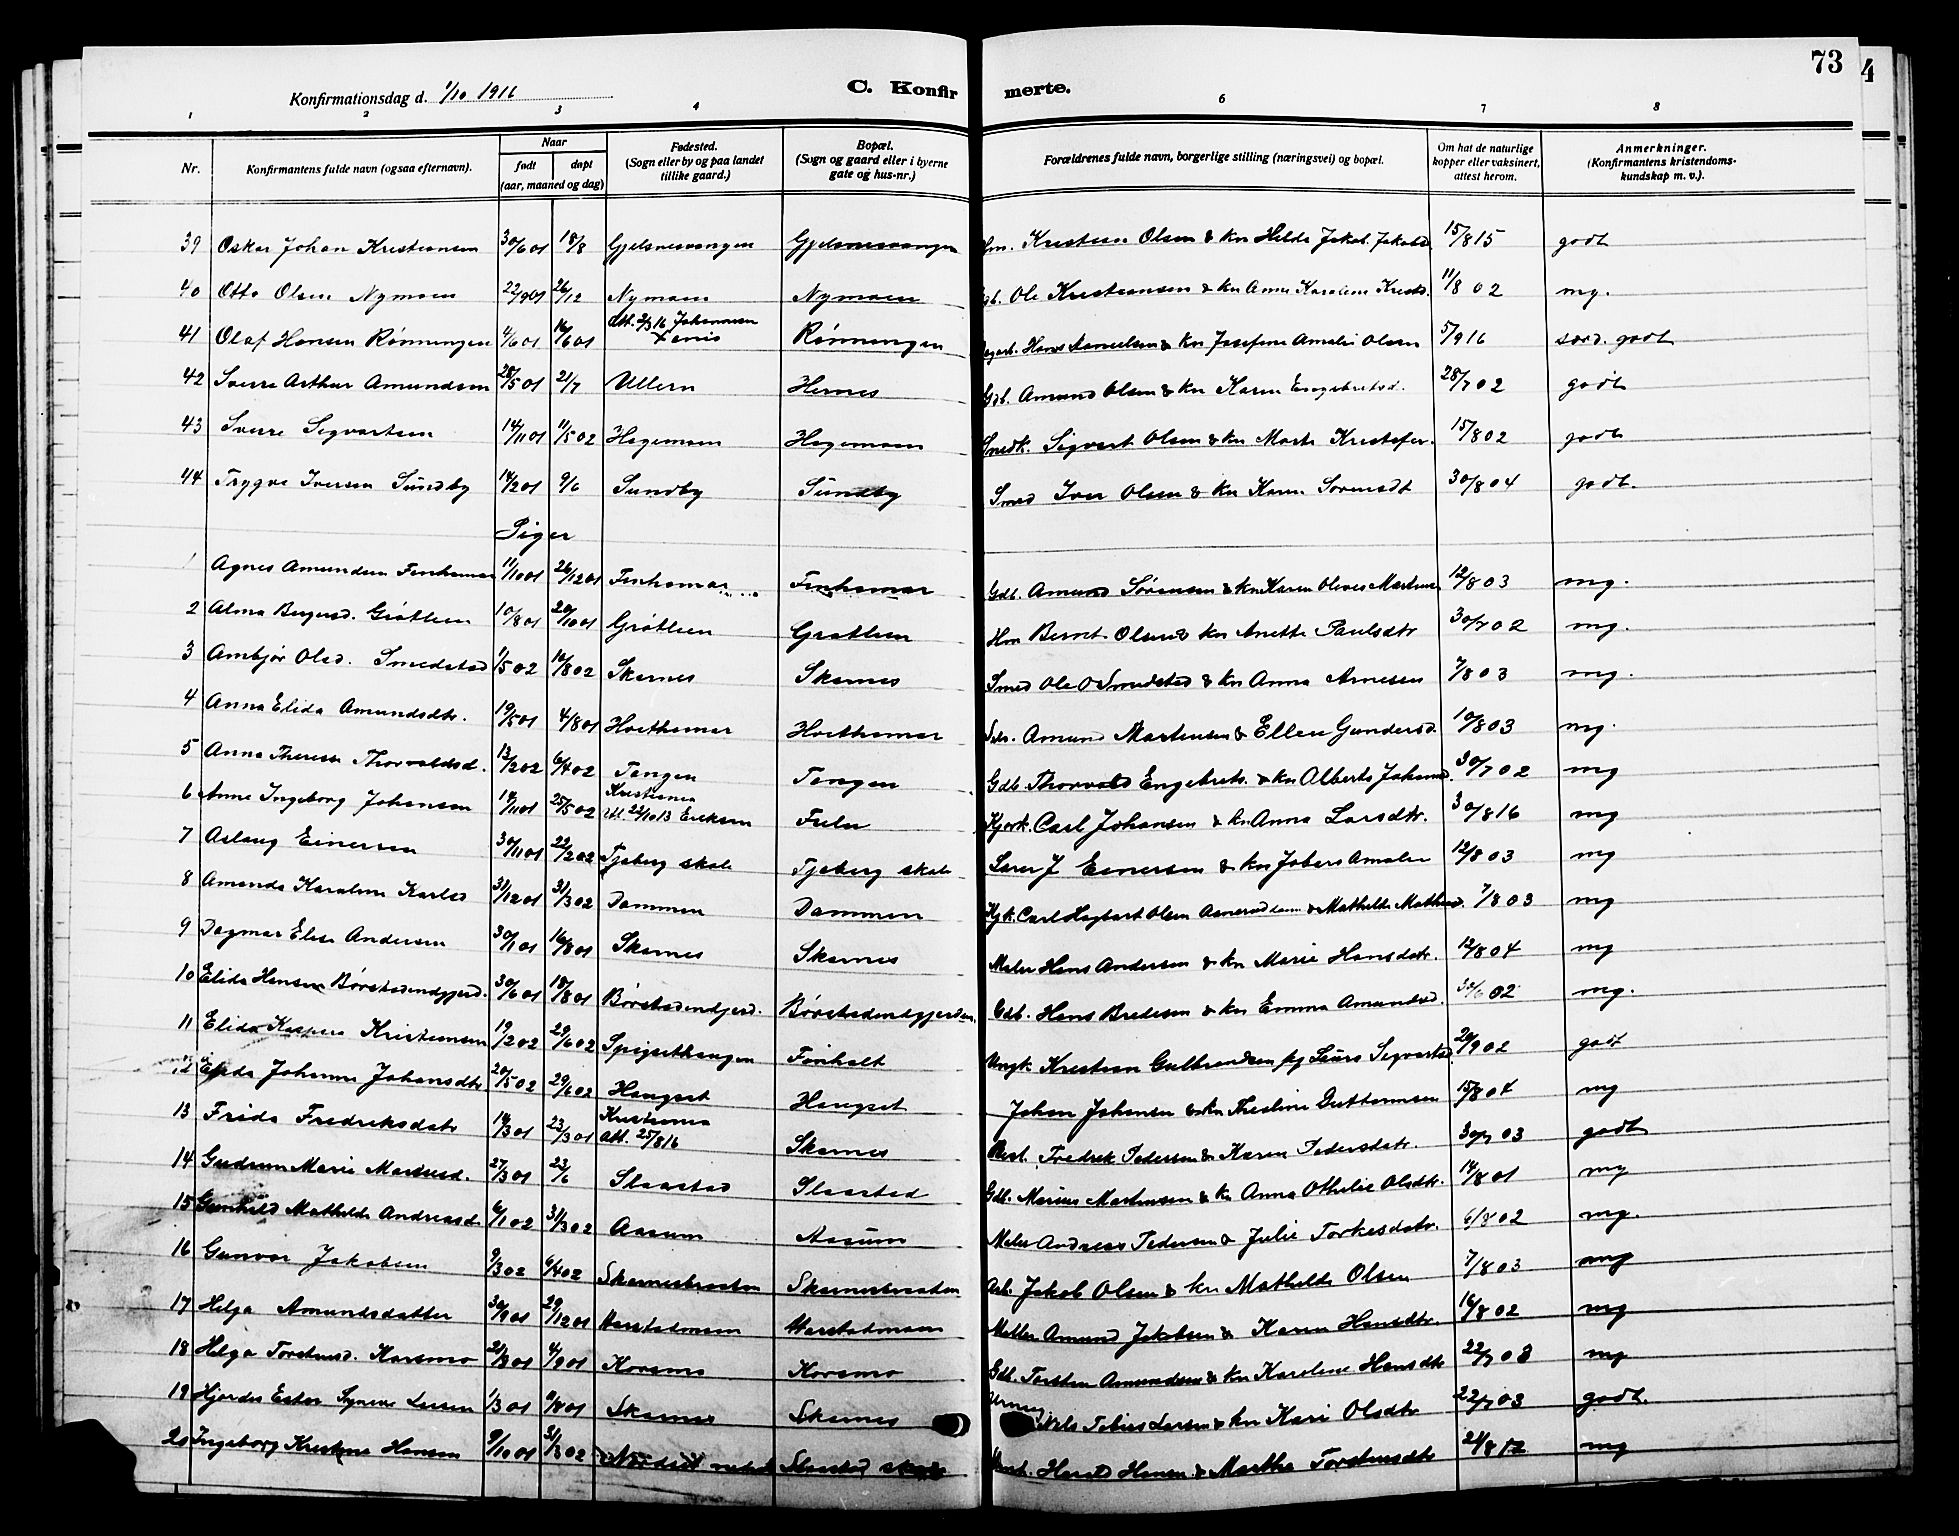 73
4
Konfirmationsdag d. 1/10 1916 C. Konfirmerte.
1 2 3 4 6 7 8
Nr. Konfirmantens fulde navn (ogsaa efternavn). Naar født døpt (aar, maaned og dag) Fødested. (Sogn eller by og paa landet tillike gaard.) Bopæl. (Sogn og gaard eller i byerne gate og hus-nr.) Forældrenes fulde navn, borgerlige stilling (næringsvei) og bopæl. Om hat de naturlige kopper eller vaksinert, attest herom. Anmerkninger. (Konfirmantens kristendomskundskap m. v.).
39 Oskar Johan Kristiansen 30/6 01 18/8 Gjelsnesvangen Gjelsnesvangen Hm. Kristian Olsen & kn Hilda Jakob. 15/8 15 godt
40 Otto Olsen Nymoen 22/9 01 26/12 Nymoen Nymoen Ole Kristiansen & kn Anne Karoline Krists. 11/8 02 mg.
41 Olaf Hansen Rønningen 4/6 01 16/6 01 Att. 2/3 16 Johannesen Rønningen Hans & kn Josefine Amalie Olsen 5/9 16 særd. godt
42 Sverre Arthur Amundsen 28/5 01 21/7 Ullern Hernes Gdb. Amund Olsen & kn Karen Engebretsd. 28/7 02 godt
43 Sverre Sigvartsen 14/11 01 11/5 02 Hagemoen Hagemoen Snedk. Sigvart Olsen & kn Marte Kristofer. 15/8 02 godt
44 Trygve Iversen Sundby 14/2 01 9/6 Sundby Sundby Smed Iver Olsen & kn Karen Sørensdt 30/8 04 godt.
Piger
1 Agnes Amundsen Finhamar 11/10 01 26/12 01 Finhamar Finhamar Gdb. Amund Sørensen & kn Karen Olives Martins 12/8 03 mg.
2 Alma Bergersd. Grøtlien 10/8 01 20/10 01 Grøtlien Grøtlien Hm Bernt Olsen & kn Anette Paulsdtr 30/7 02 mg.
3 Ambjør Olsd. Smedstad 1/5 02 10/8 02 Skarnes Skarnes Smed Ole O Smedstad & kn Anna Arnesen 7/8 03 mg.
4 Anna Elida Amundsdtr. 19/5 01 4/8 01 Hvithamar Hvithamar Amund Martinsen & Ellen Gundersd. 10/8 03 mg.
5 Anna Therese Thorvaldsd. 13/2 02 6/4 02 Tangen Tangen Gdb. Thorvald Engebrets. & kn Alberte Johans. 30/7 02 mg
6 Anne Ingeborg Johansen 14/11 01 25/5 02 Kristiania att. 22/10 13 Eriksen Fuler Kjørk. Carl Johansen & kn Anna Larsdtr. 30/8 16 mg
7 Aslaug Einersen 30/11 01 22/2 02 Tjaberg skole Tjaberg skole Lærer J Einersen & kn Amalie 12/8 03 mg
8 Amanda Karoline Karlsd 31/12 01 31/3 02 Dammen Dammen Carl Hagbart Olsen & Mathilde Mathisd. 7/8 03 mg
9 Dagmar Elise Andersen 30/1 01 16/8 01 Skarnes Skarnes Maler Hans Andersen & kn Marie Hansdatr. 12/8 04 mg
10 Elida Hansen Børstadendgjerd. 30/6 01 18/8 01 Børstadendjerd. Børstadendgjerden Gdb. Hans Bredesen & kn Emma Amundsd. 30/6 02 mg.
11 Elida Kaspara Kristiansen 19/2 02 29/6 02 Spigsethaugen Fonholt Ungk. Kristian Gulbrandsen pg Laura Sigvartsd 20/9 02 godt
12 Elida Johanne Johansdtr 20/5 02 29/6 02 Haugset Haugset Johan Johansen & kn Theoline Guttormsen 15/8 04 mg
13 Frida Fredriksdatr 14/3 01 23/3 01 Kristiania Att. 25/8 16 Skarnes Fredrik Pedersen & Karen Pedersdatr. 30/7 03 godt
14 Gudrun Marie Mariusd. 27/3 01 23/6 Slaastad Slaastad Gdb. Marius Martinsen & kn Anna Othilie Olsdtr. 14/8 01 mg
15 Gunhild Mathilde Andreasd. 6/1 02 31/3 02 Aasum Aasum Maler Andreas Pedersen & Julie Torkesdatr. 6/8 02 mg.
16 Gunvor Jakobsen 9/3 02 6/4 02 Skarnesbraaten Skarnesbraaten Arb. Jakob Olsen & kn Mathilde Olsen 7/8 03 mg
17 Helga Amundsdatter 30/9 01 29/12 01 Harstadmoen Harstadmoen Møller Amund Jakobsen & Karen Hansdtr. 16/8 02 mg
18 Helga Torstensd. Korsmo 21/3 01 4/9 01 Korsmo Korsmo Gdb. Torsten Amundsen & kn Karoline Hansdtr 22/7 03 mg
19 Hjørdis Ester Synøve Larsen 1/3 01 11/8 01 Skarnes Skarnes Nils Tobias Larsen & kn Kari Olsdtr 22/7 03 godt.
20 Ingeborg Kristine Hansen 9/10 01 31/3 02 Nordset Slaastad skole Harald Hansen & Marthe Torstensdtr 21/8 12 mg